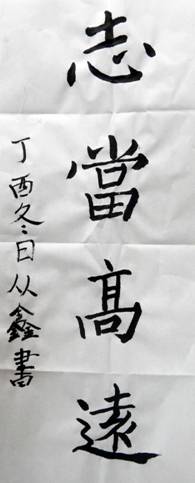 志當髙遠
丁酉冬日从鑫書